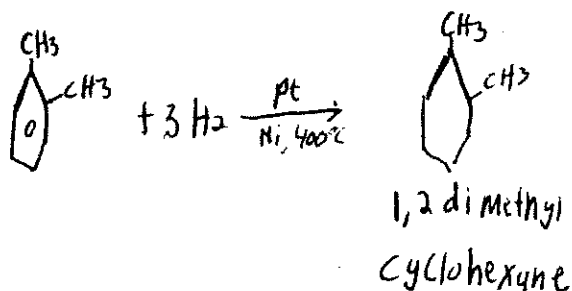 CH3
CH3
+ 3 H2
Pt
Ni, 400°C
CH3
CH3
1,2 dimethyl
cyclohexyne